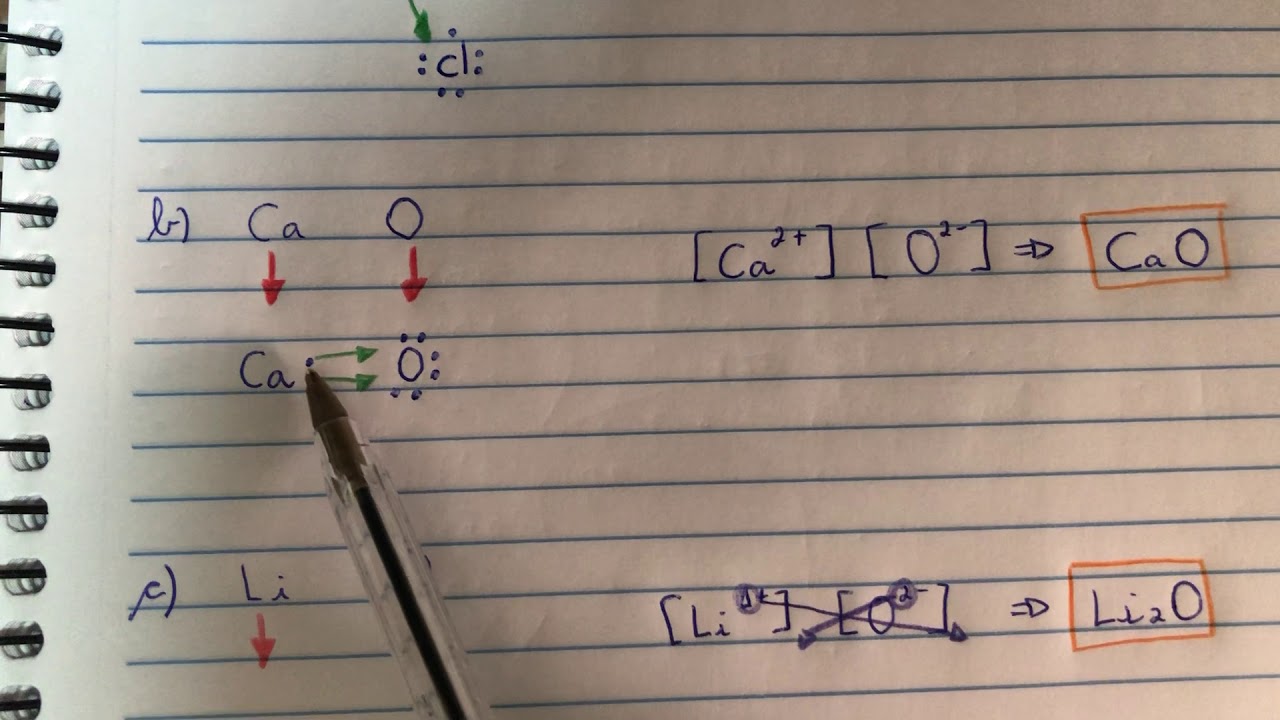 :Cl:
b) Ca O [Ca²⁺] [O²⁻] ⇒ CaO
Ca : O:
c) Li [Li¹⁺] [O²⁻] ⇒ Li₂O